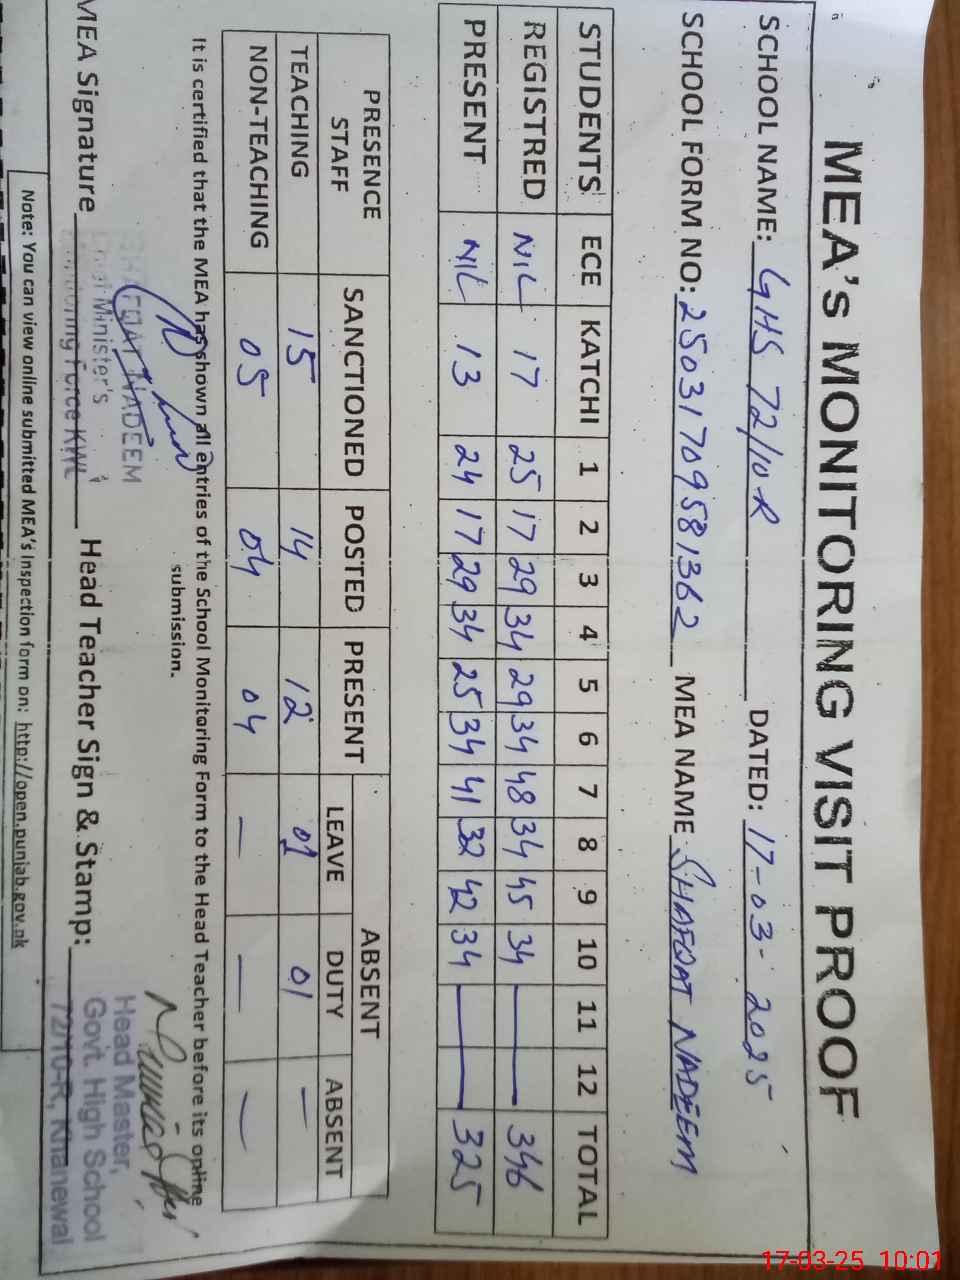 MEA's MONITORING VISIT PROOF
SCHOOL NAME: GHS 72/10-R DATED: 17-03-2025
SCHOOL FORM NO: 25031709581362 MEA NAME SHAFQAT NADEEM
STUDENTS ECE KATCHI 1 2 3 4 5 6 7 8 9 10 11 12 TOTAL
REGISTRED NIL 17 25 17 29 34 29 34 48 34 45 34 — — 346
PRESENT NIL 13 24 17 29 34 25 34 41 32 42 34 — — 325
PRESENCE STAFF SANCTIONED POSTED PRESENT ABSENT
LEAVE DUTY ABSENT
TEACHING 15 14 12 01 01 —
NON-TEACHING 05 04 04 — — —
It is certified that the MEA has shown all entries of the School Monitoring Form to the Head Teacher before its online
submission.
MEA Signature Head Teacher Sign & Stamp:
NADEEM
Minister's
Monitoring Force KWL
Head Master,
Govt. High School
72/10-R, Khanewal
Note: You can view online submitted MEA's Inspection form on: http://open.punjab.gov.pk
17-03-25 10:01